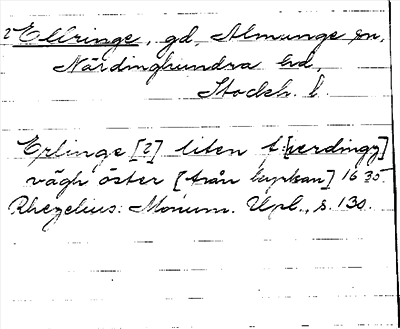 2 Ellringe, gd, Almunge sn,
Närdinghundra hd,
Stockh. l.
Erlinge [2] liten f:[ierdingz]
vägh öster [från kyrkan] 1635.
Rhezelius: Monum. Upl., s. 130.